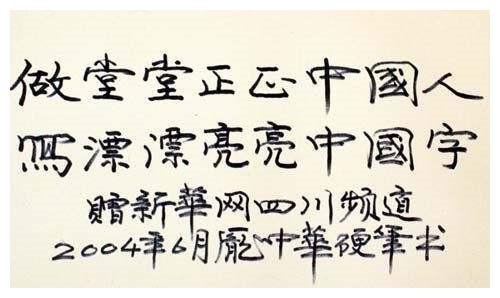 做堂堂正正中國人
寫漂漂亮亮中國字
贈新華网四川频道
2004年6月龐中華硬筆书